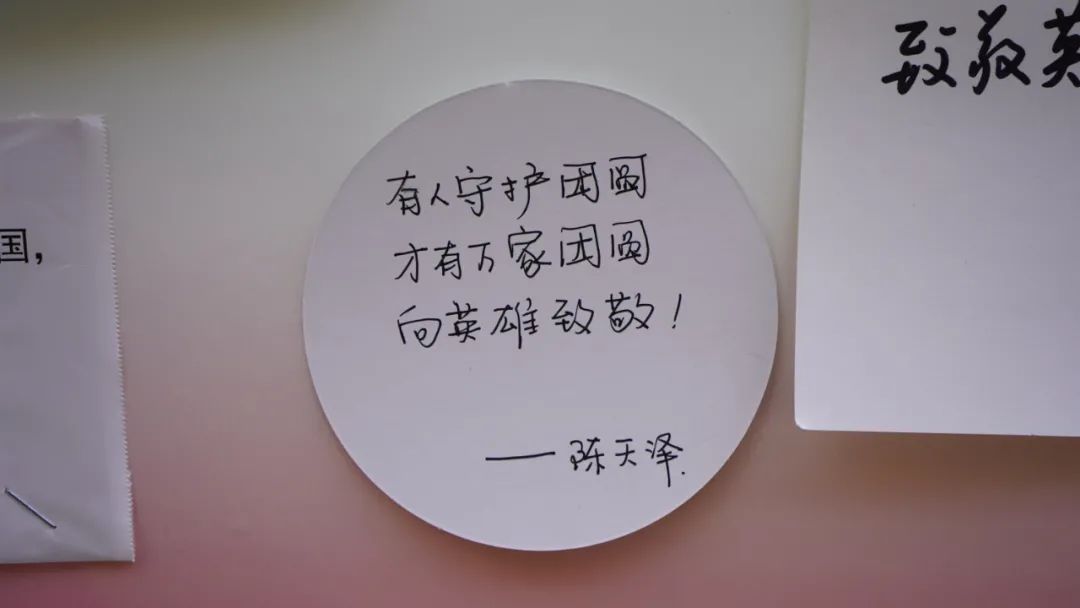 国，
有人守护团圆
才有万家团圆
向英雄致敬！
——陈天泽
致敬英